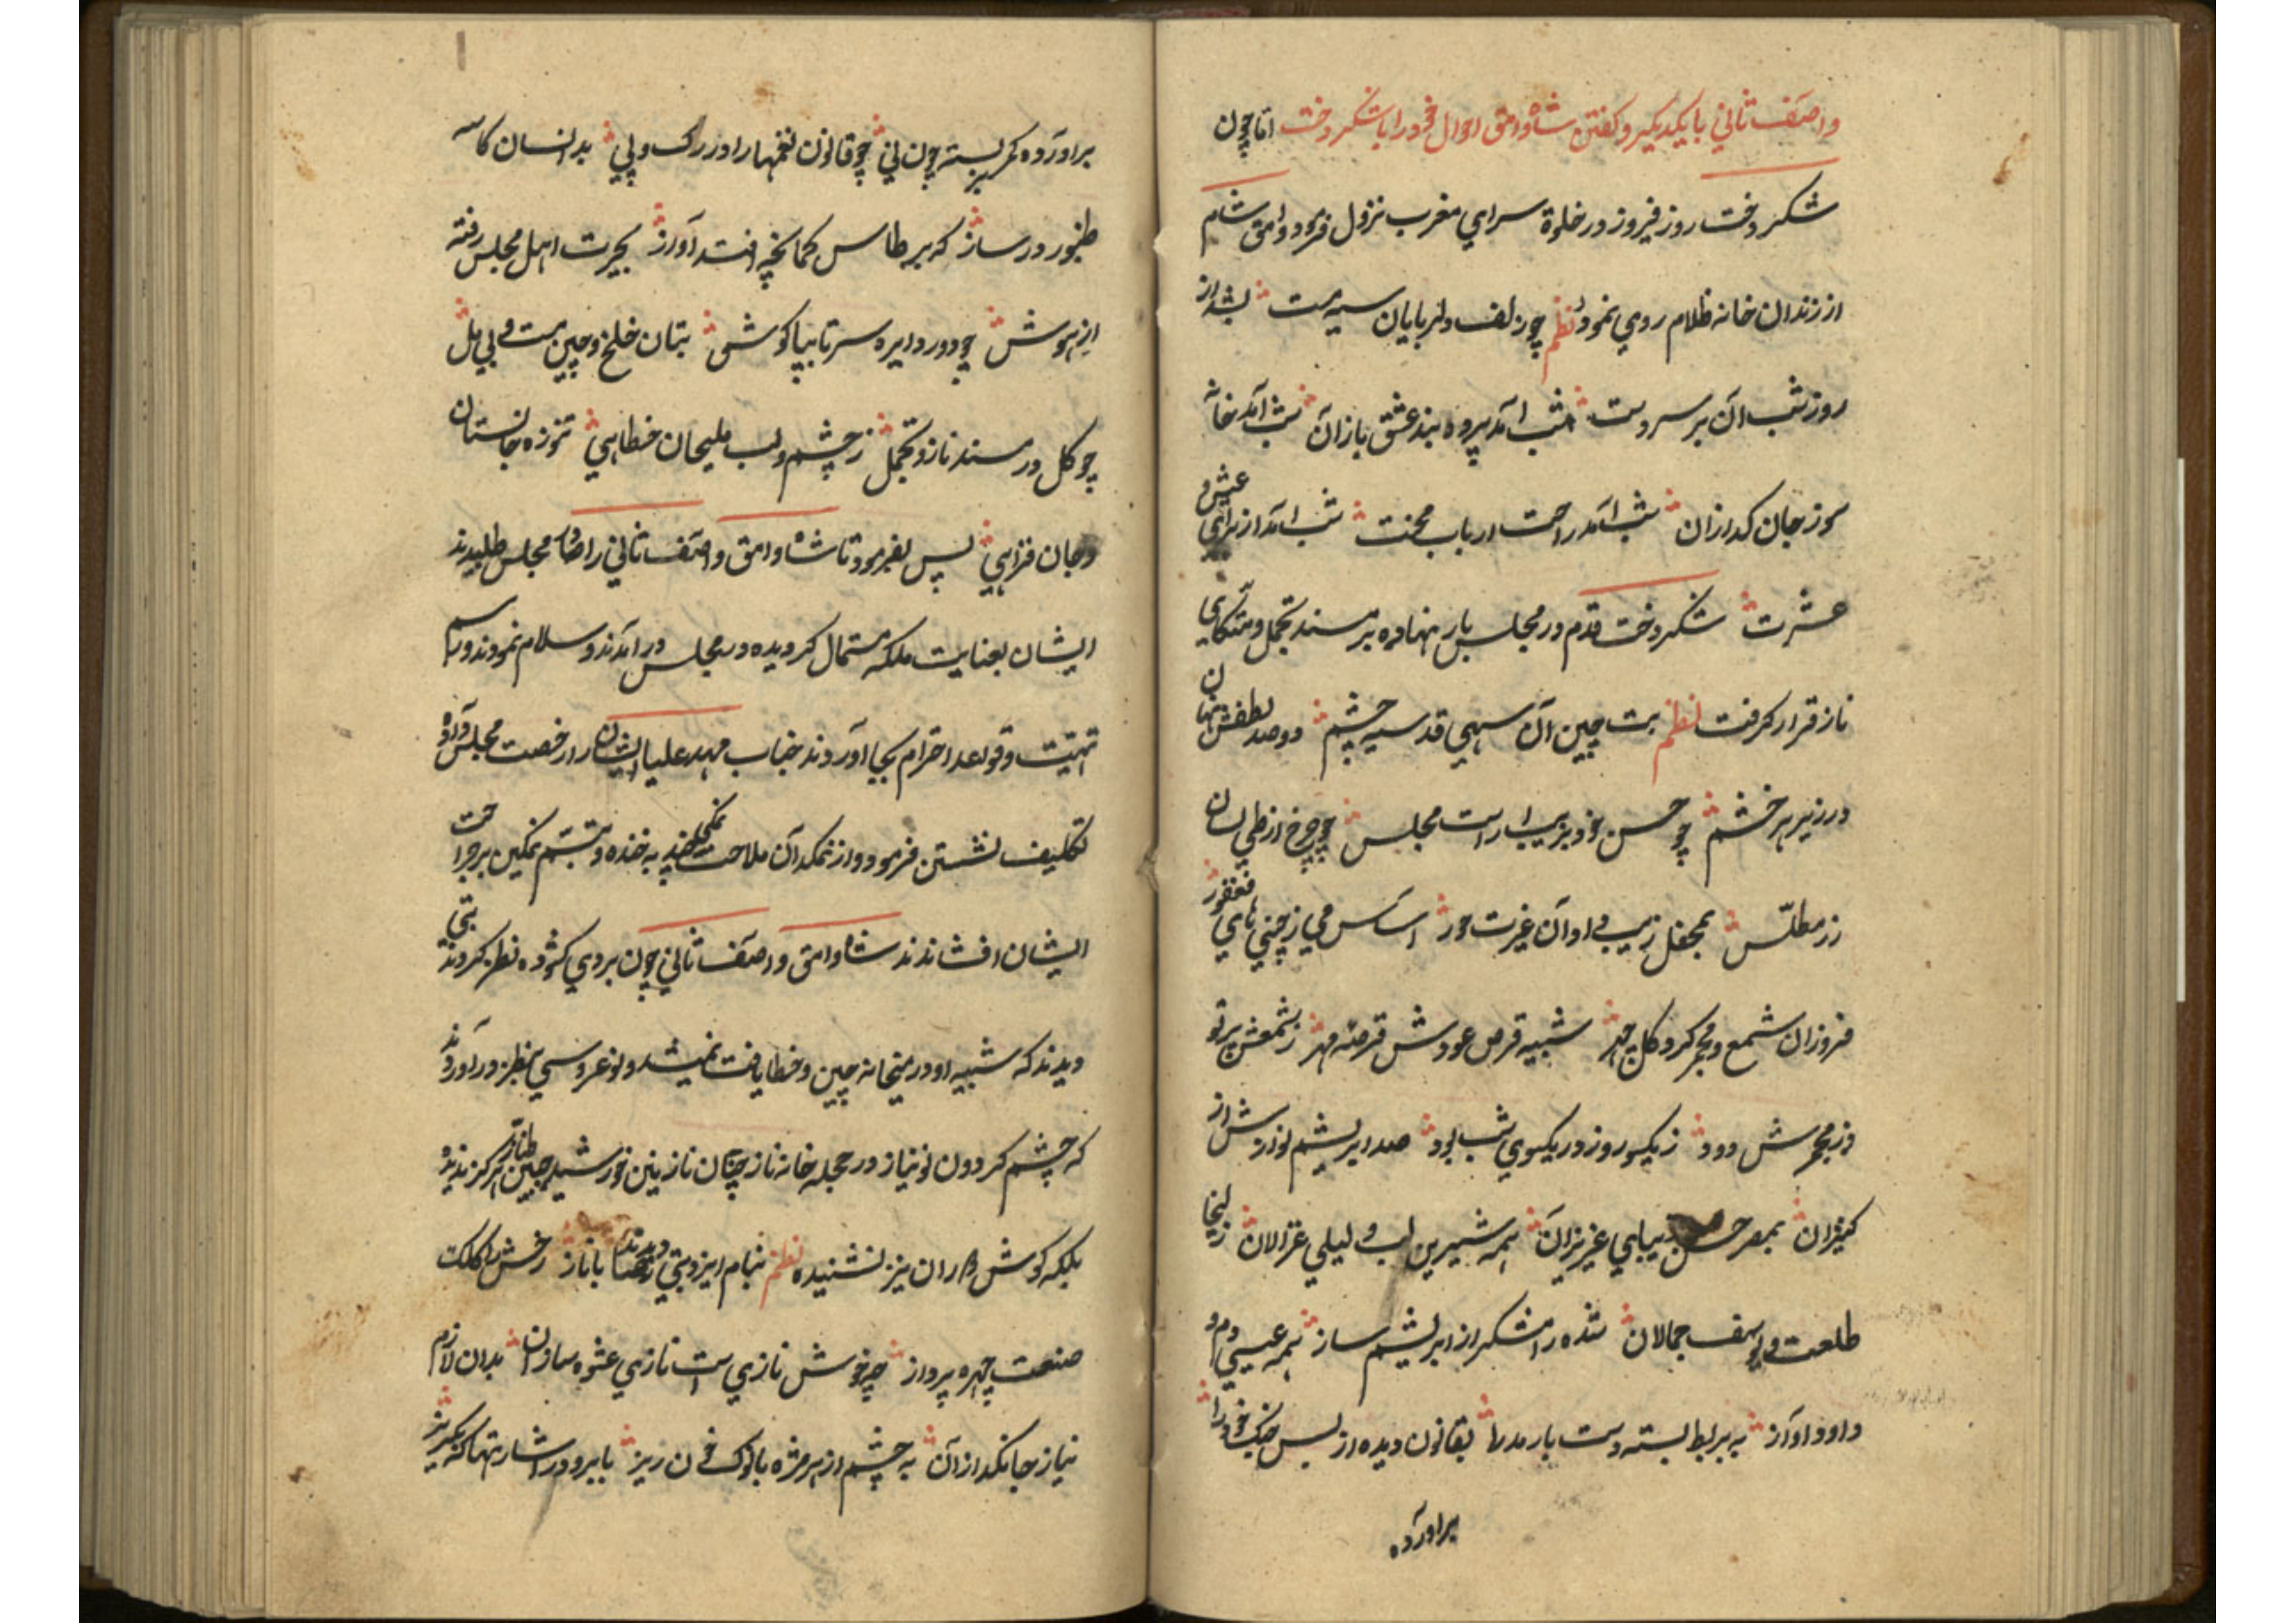 واصف ثانی با یکدیگر و کفتن شاه وامق احوال خود را با شکر دخت اما چون
شکر دخت روز فیروز در خلوة سرای مغرب نزول فرمود و وامق شام
از زندان خانه ظلام روی نمود نظم چو زلف دلربایان سیه مست بشد از
روز شب آن بر سر دست شب آمد پرده بند عشق بازان شب آمد خانه
سوز جان کدازان شب آمد راحت ارباب محنت شب آمد از برای عیش و
عشرت شکر دخت قدم در مجلس بار نهاده بر مسند تجمل و متکای
ناز قرار کرفت نظم بت چین آن سهی قد سیه چشم دو صد لطفش نهان
در زیر هر خشم چو حسن خود بزیب اراست مجلس چو چرخ از طیلسان
زر مطلس بمحفل زیب داد آن غیرت حور اساس می ز چینی های فغفور
فروزان شمع و مجمر کرد کل چهر شبیه قرص عودش قرصه مهر ز شمعش پرتو
وز مجمرش دود ز یکسو روز در یکسوی شب بود صدا بریشم نوازش از
کنیزان بمصر حسن زیبایی عزیزان همه شیرین لب و لیلی غزالان زلیخا
طلعت و یوسف جمالان شده رامشکر از ابریشم ساز همه عیسی دم و
داود آواز به بربط بسته دست بار بقانون دیده از بس چنک خود را
برآورده
برآورده کمر بسته چون نی چو قانون نغمها را در رک و پی بدانسان کاسه
طنبور در ساز که بر طاس کمانچه افتد آواز بحیرت اهل مجلس رفته
از هوش چو دور دایره سر تا بپا کوش بتان خلخ و چین مست و بی مل
چو کل در مسند ناز و تجمل ز چشم و لب ملیحان خطایی جانستان
و جان فزایی پس بفرمود تا شاه وامق واصف ثانی را مجلس طلبیدند
ایشان بعنایت ملکه مستمال کردیده در مجلس در آمدند و سلام نمودند و راسم
تهیت و قواعد احترام بجا آوردند جناب مهد علیا ایشان را رخصت مجلس داده
تکلیف نشستن فرمود و از نمکدان ملاحت به خنده و تبسم نمکین بر جراحت
ایشان افشاندند شاه وامق واصف ثانی چون بروی کشوده نظر کردند بتی
دیدند که شبیه او در بتخانه چین و خطا یافت نمیشد و نو عروسی بنظر در آوردند
که چشم کردون نو نیاز در حجله خانه ناز چنان نازنین خورشید جبین طناز هرکز ندیده
بلکه کوش دوران نیز نشنیده نظم بنام ایزد بتی دیدند با ناز رخش را کلک
صنعت چهره پرداز چه خوش نازی است نازی عشوه سازان بدان لازم
نیاز جانکدازان به چشم از هر مژه با نوک خون ریز بابرو در اشارتها